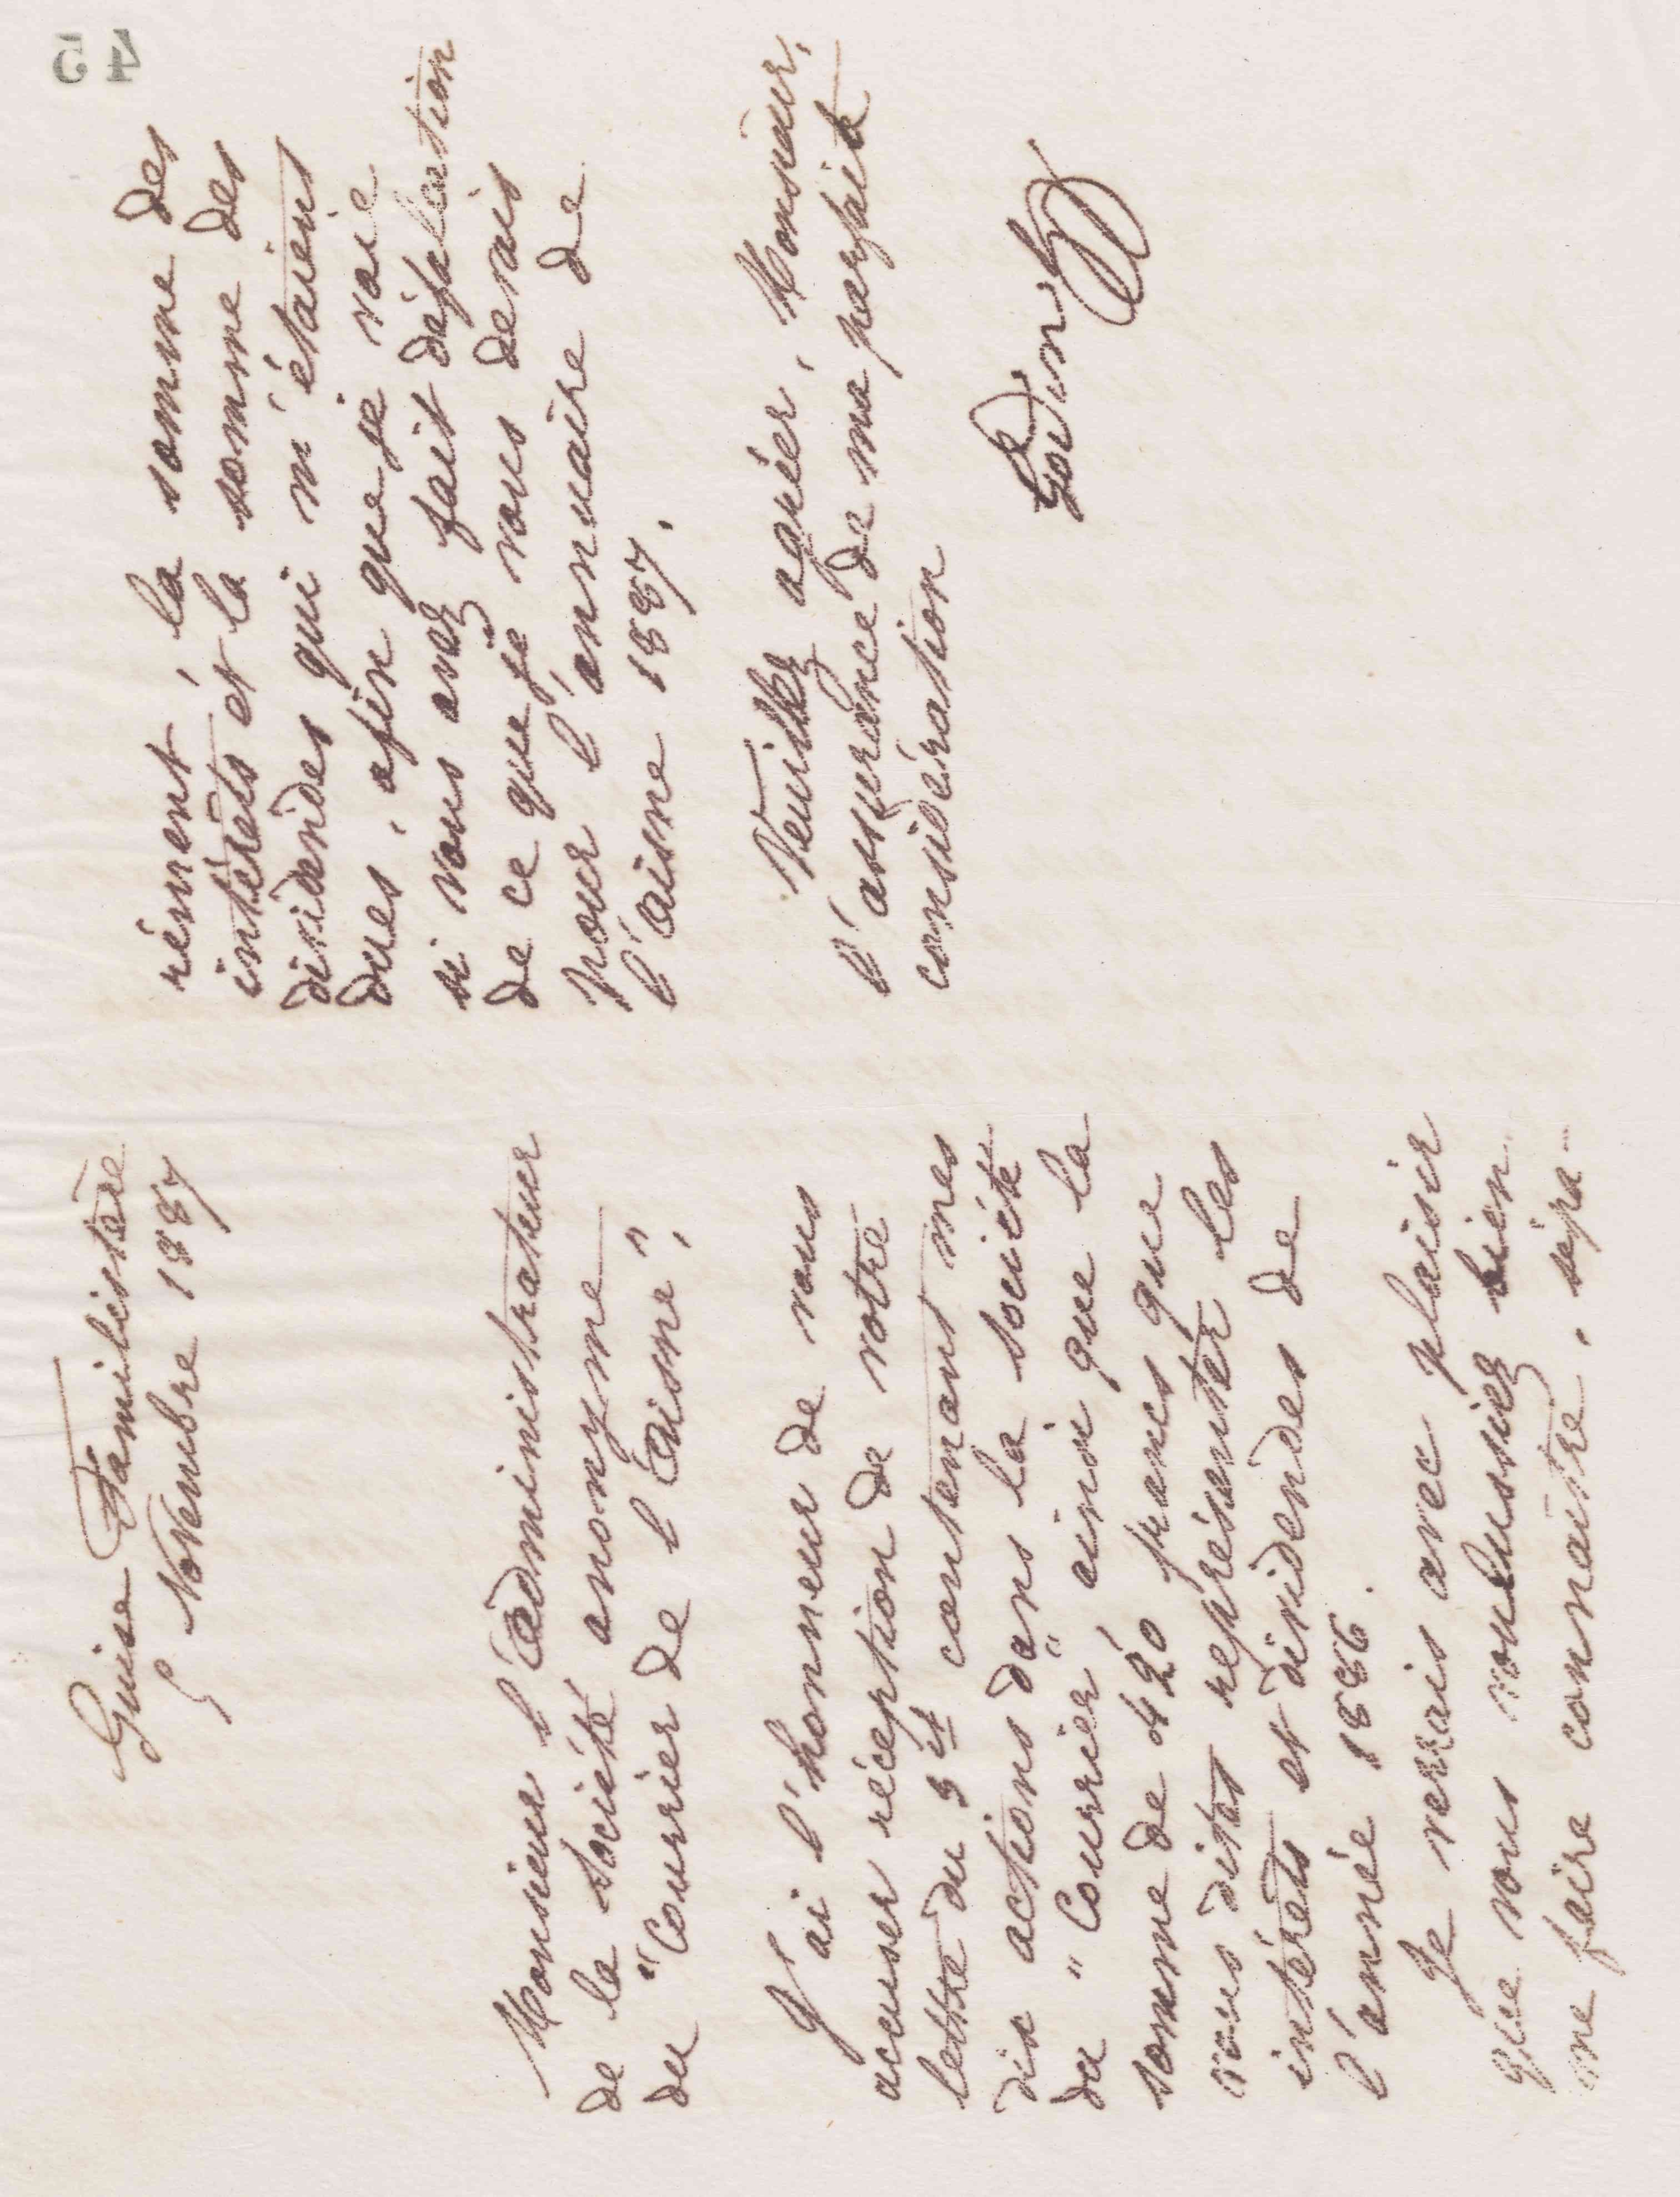 Guise Familistère
5 Novembre 1887
Monsieur l'administrateur
de la société anonyme
du "Courrier de l'Aisne",
J'ai l'honneur de vous
accuser réception de votre
lettre du 3 ct contenant mes
dix actions dans la société
du "Courrier" ainsi que la
somme de 420 francs que
vous dites représenter les
intérêts et dividendes de
l'année 1886.
Je verrais avec plaisir
que vous voulussiez bien
me faire connaître, sépa-
rément, la somme des
intérêts et la somme des
dividendes qui m'étaient
dues, afin que je voie
si vous avez fait défalcation
de ce que je vous devais
pour l'annuaire de
l'Aisne 1887.
Veuillez agréer, Monsieur,
l'assurance de ma parfaite
considération
Godin
45